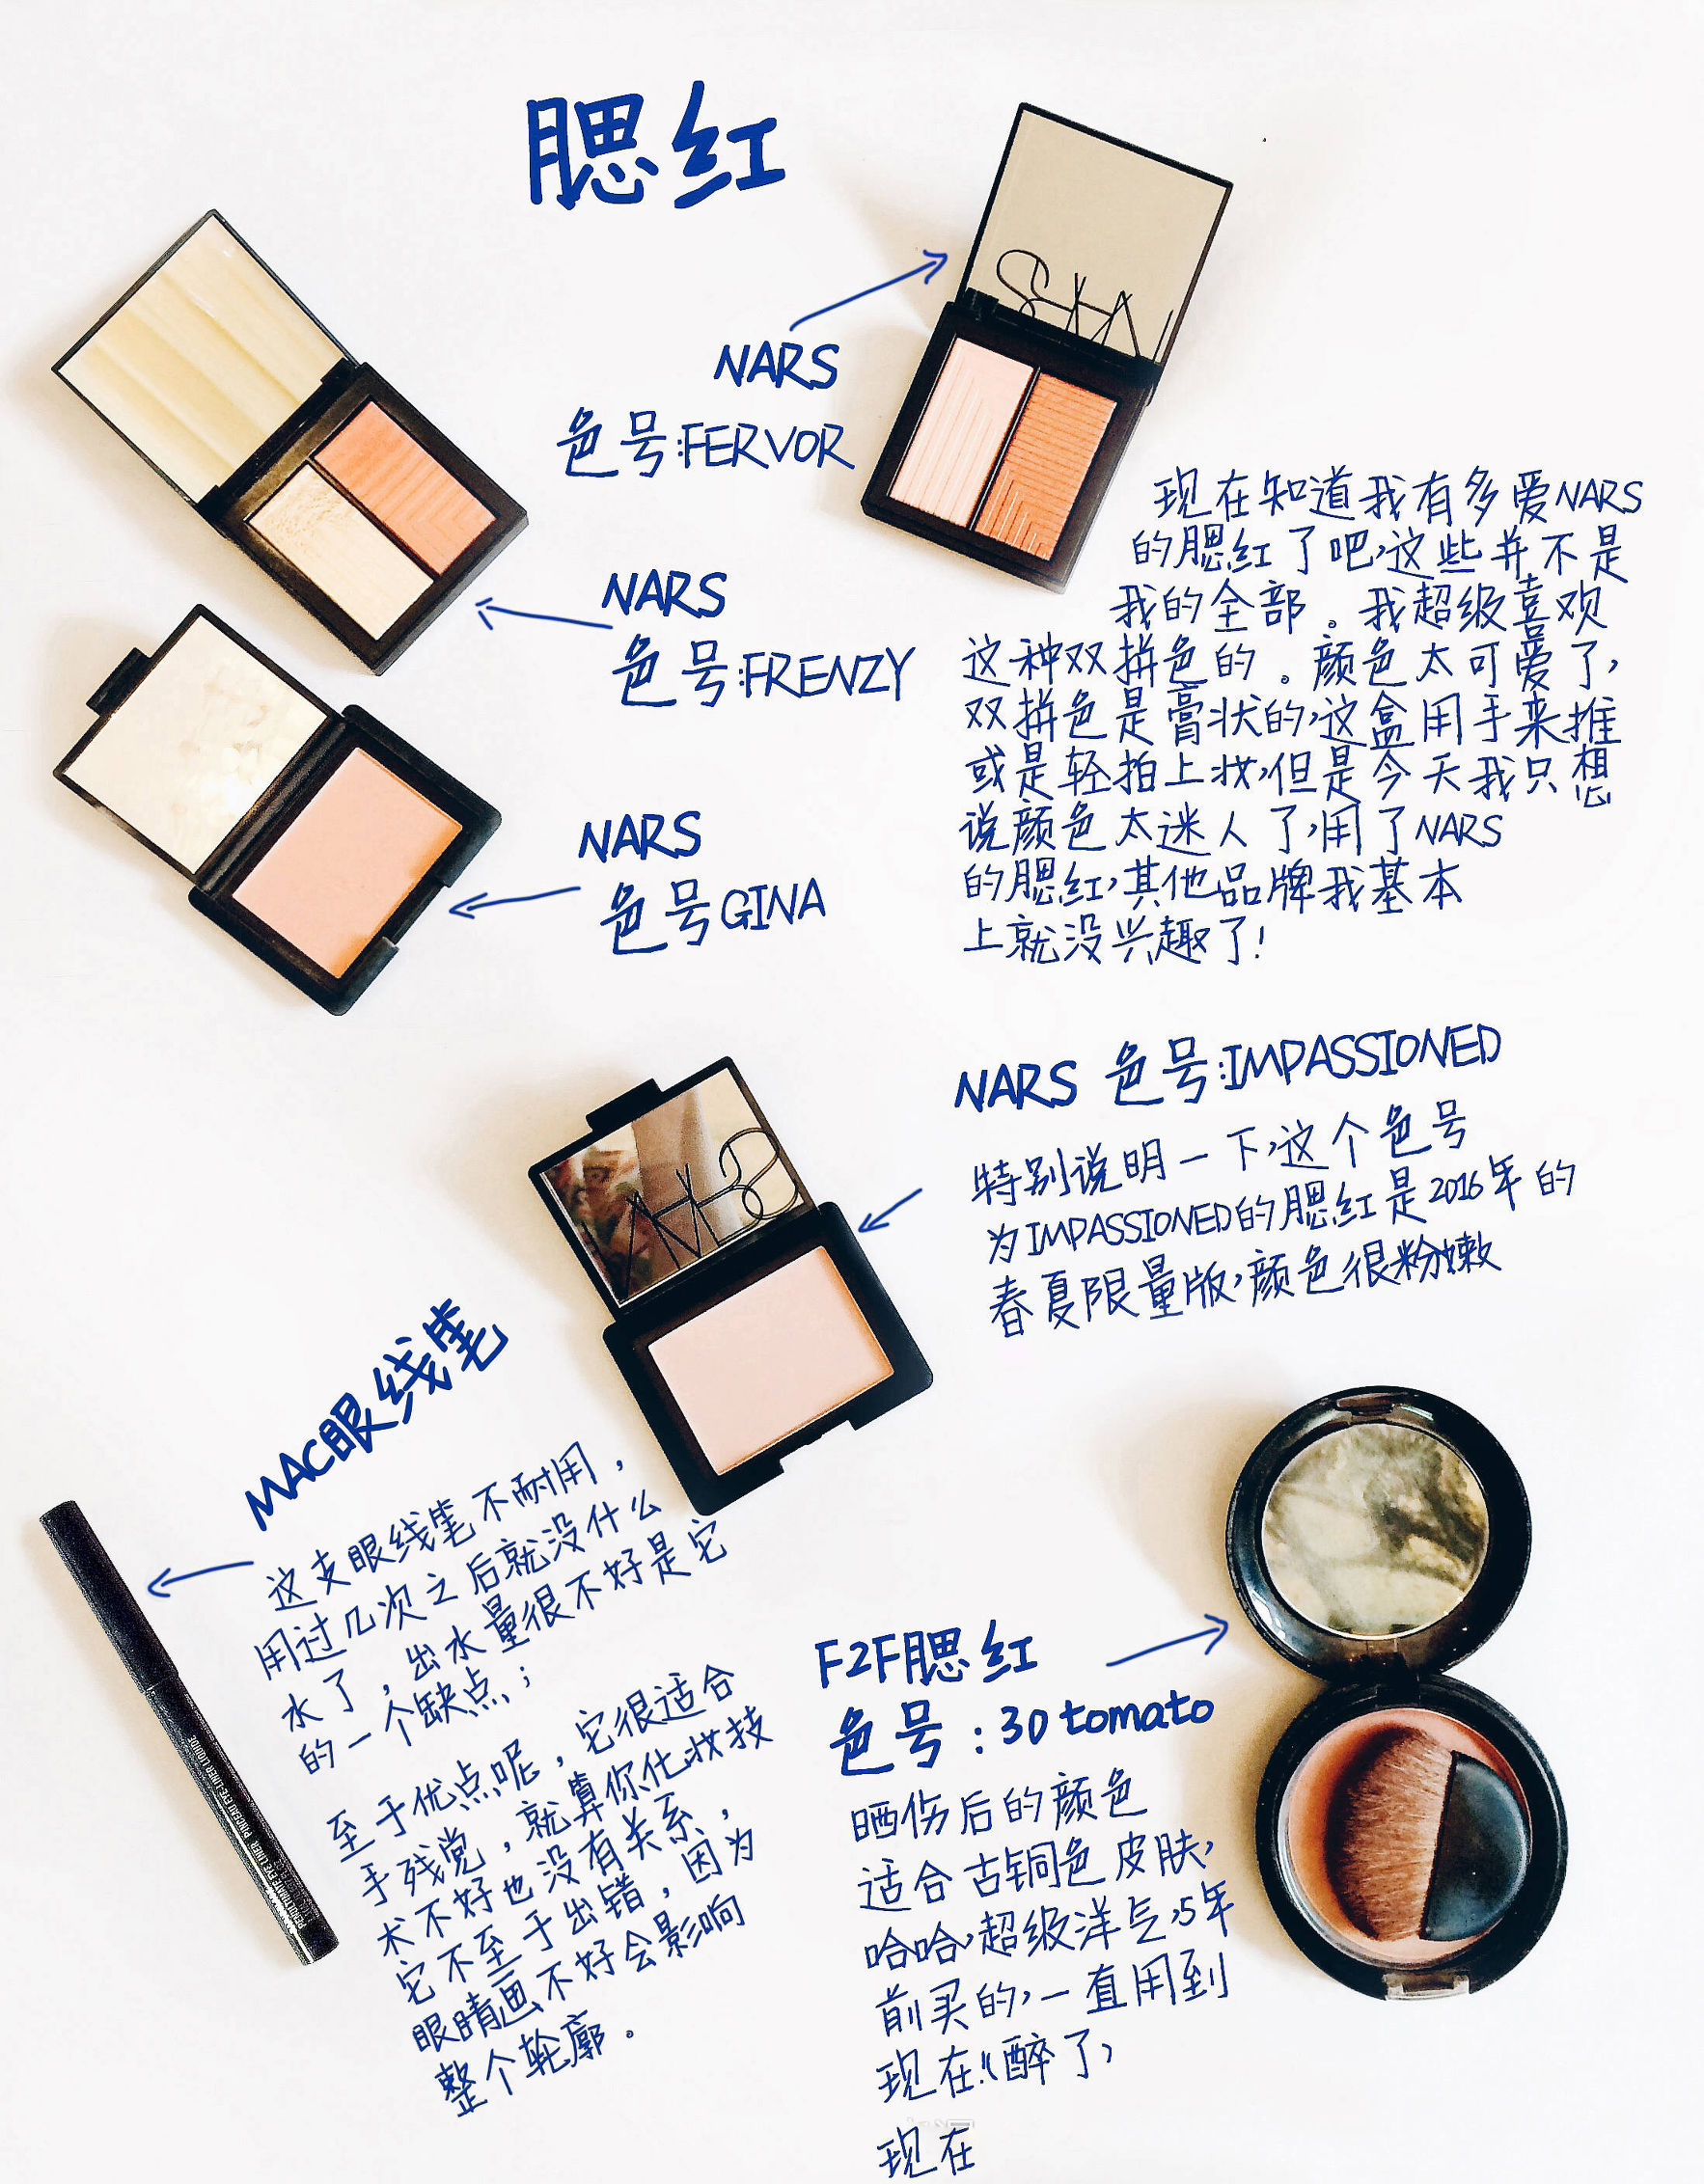 腮红
NARS
色号:FERVOR
NARS
色号:FRENZY
NARS
色号GINA
现在知道我有多爱NARS
的腮红了吧,这些并不是
我的全部。我超级喜欢
这种双拼色的。颜色太可爱了,
双拼色是膏状的,这盒用手来推
或是轻拍上妆,但是今天我只想
说颜色太迷人了,用了NARS
的腮红,其他品牌我基本
上就没兴趣了!
NARS 色号:IMPASSIONED
特别说明一下,这个色号
为IMPASSIONED的腮红是2016年的
春夏限量版,颜色很粉嫩
NARS
NARS
MAC眼线笔
这支眼线笔不耐用,
用过几次之后就没什么
水了,出水量很不好是它
的一个缺点;
至于优点呢,它很适合
手残党,就算你化妆技
术不好也没有关系,
它不至于出错,因为
眼睛画不好会影响
整个轮廓.
F2F腮红
色号:30 tomato
晒伤后的颜色
适合古铜色皮肤,
哈哈,超级洋气,5年
前买的,一直用到
现在!(醉了)
现在